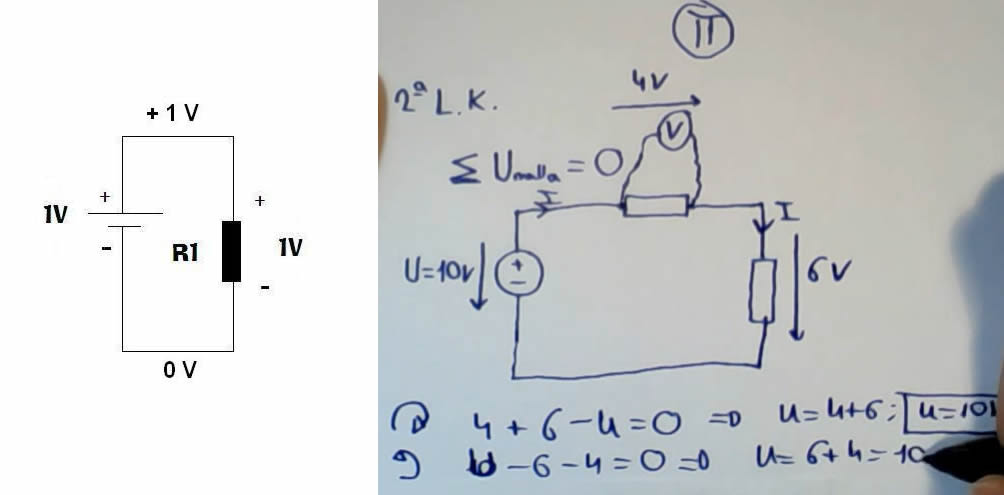 + 1 V
+
1V
-
R1
+
1V
-
0 V
II
2ª L.K.
4V
V
Σ Umalla = 0
I
I
U=10V
+
−
6V
4 + 6 − U = 0 ⇒ U = 4+6; U=10V
− 6 − 4 = 0 ⇒ U = 6+4 = 10